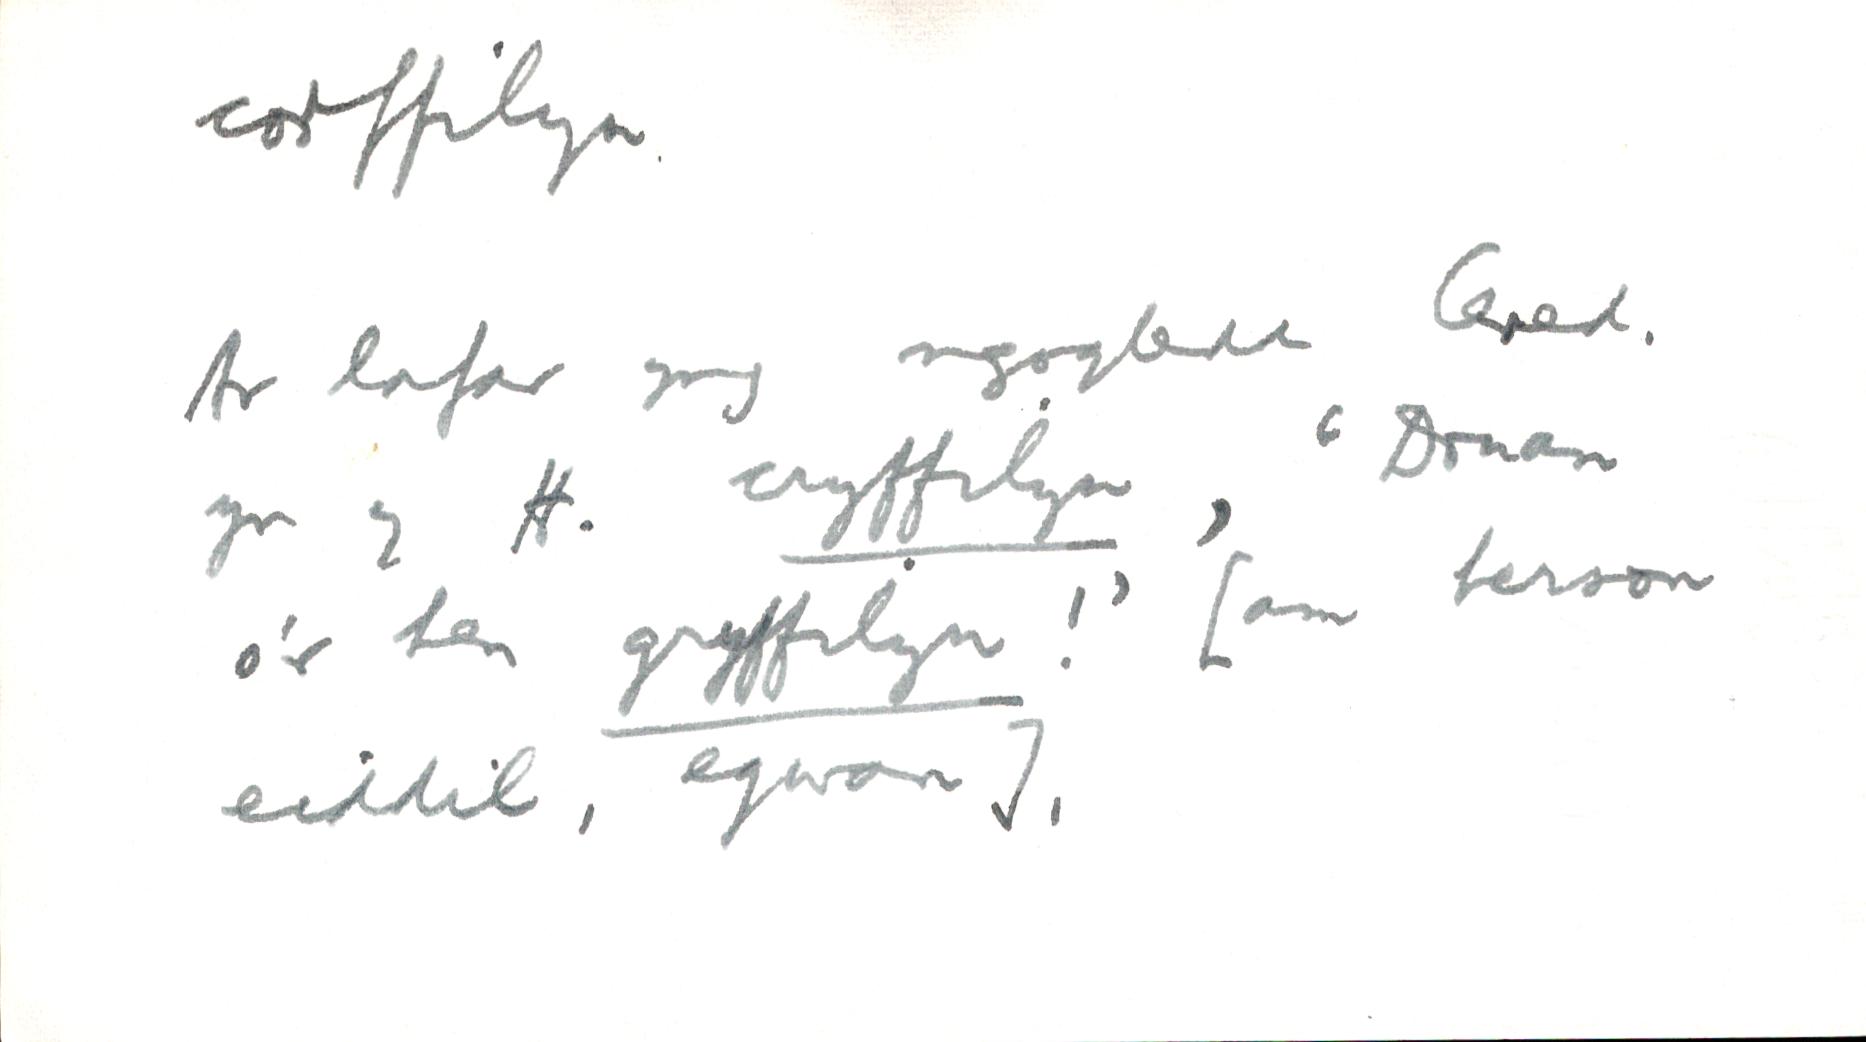 corffilyn.
Ar lafar yng ngogledd Cered.
yn y ff. cryffilyn, 'Druan
o'r hen gryffilyn!' [am berson
eiddil, egwan].